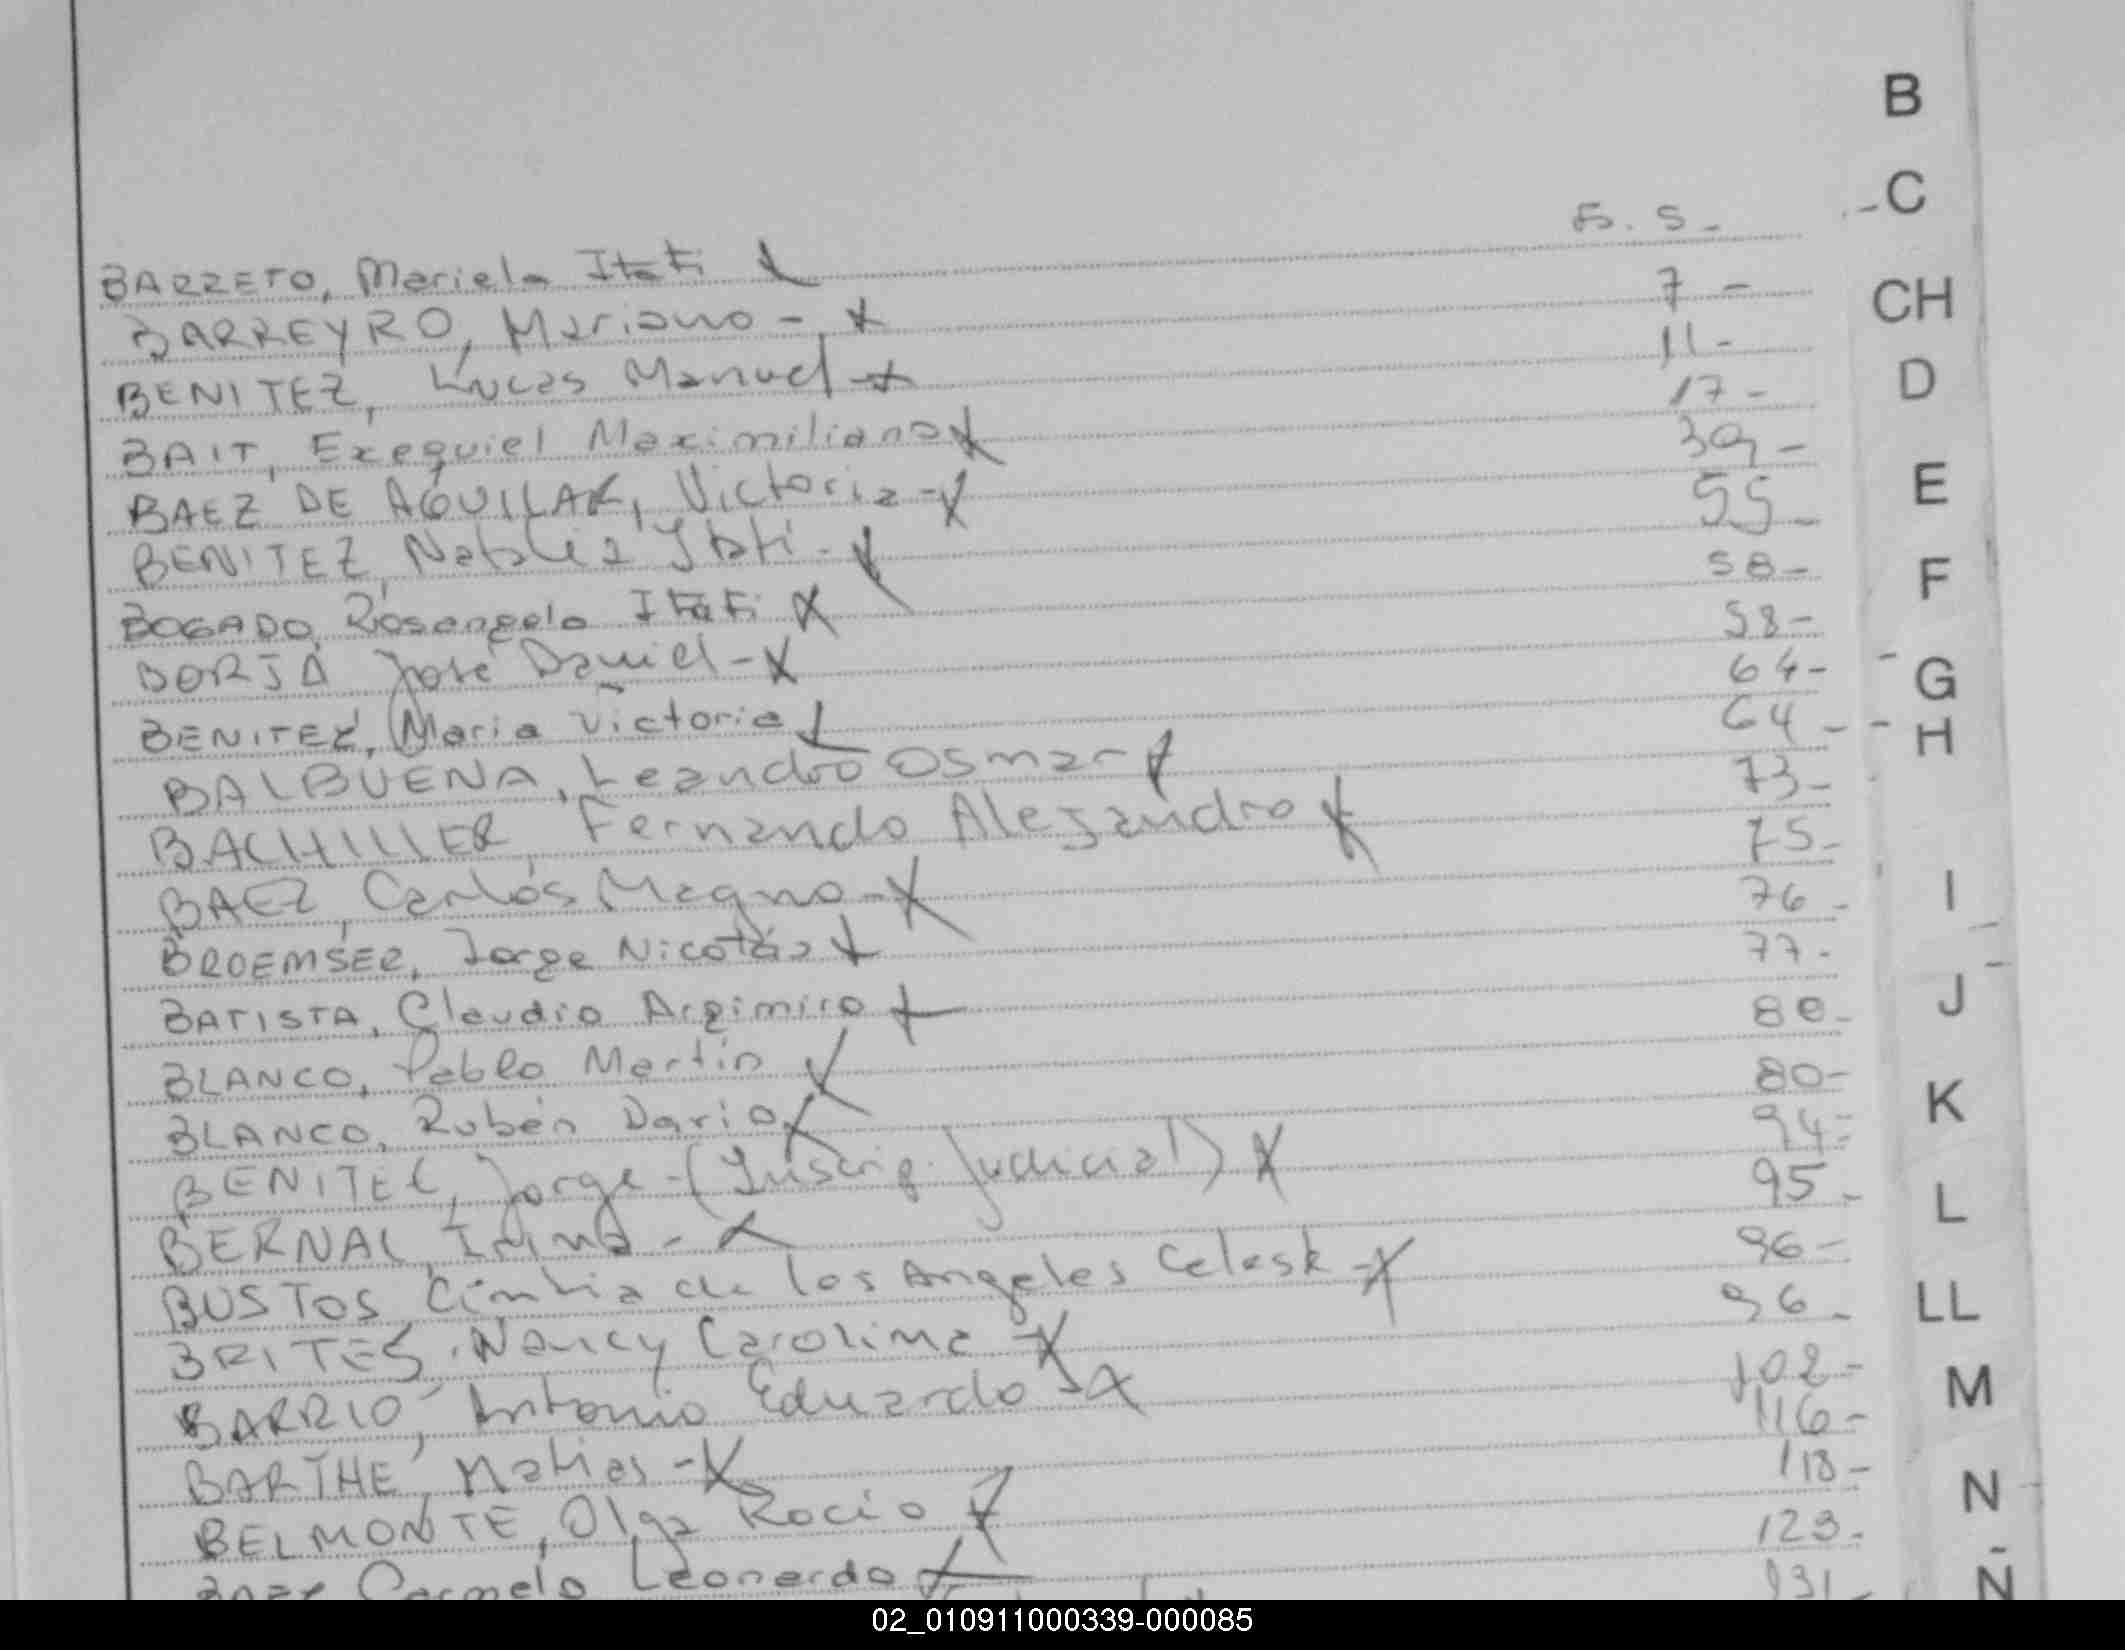 B
C
BARRETO, Mariela Itati Fs. 5-
CH
BARREYRO, Mariano - 7 -
BENITEZ, Lucas Manuel 11 -
D
BAIT, Exequiel Maximiliano 17 -
BAEZ DE AGUILAR, Victoria - 39 -
E
BENITEZ, Natalia Itati - 55 -
BOGADO, Rosangela Itati 58 -
F
BORJA José Daniel - 58 -
BENITEZ, Maria Victoria 64 -
G
BALBUENA, Leandro Osmar 64 -
H
BACHILLER, Fernando Alejandro 73 -
BAEZ, Carlos Magno - 75 -
BROEMSER, Jorge Nicolás 76 -
I
BATISTA, Claudio Argimiro 77 -
BLANCO, Pablo Martín 80 -
J
BLANCO, Rubén Dario 80 -
BENITEZ, Jorge - (Inscrip. Judicial) 94 -
K
BERNAL, Irina - 95 -
BUSTOS, Cinthia de los Angeles Celeste - 96 -
L
BRITES, Nancy Carolina 96 -
LL
BARRIO, Antonio Eduardo - 102 -
BARTHE, Matias - 116 -
M
BELMONTE, Olga Rocio 118 -
N
BAEZ Carmelo Leonardo 123 -
131 -
Ñ
02_010911000339-000085